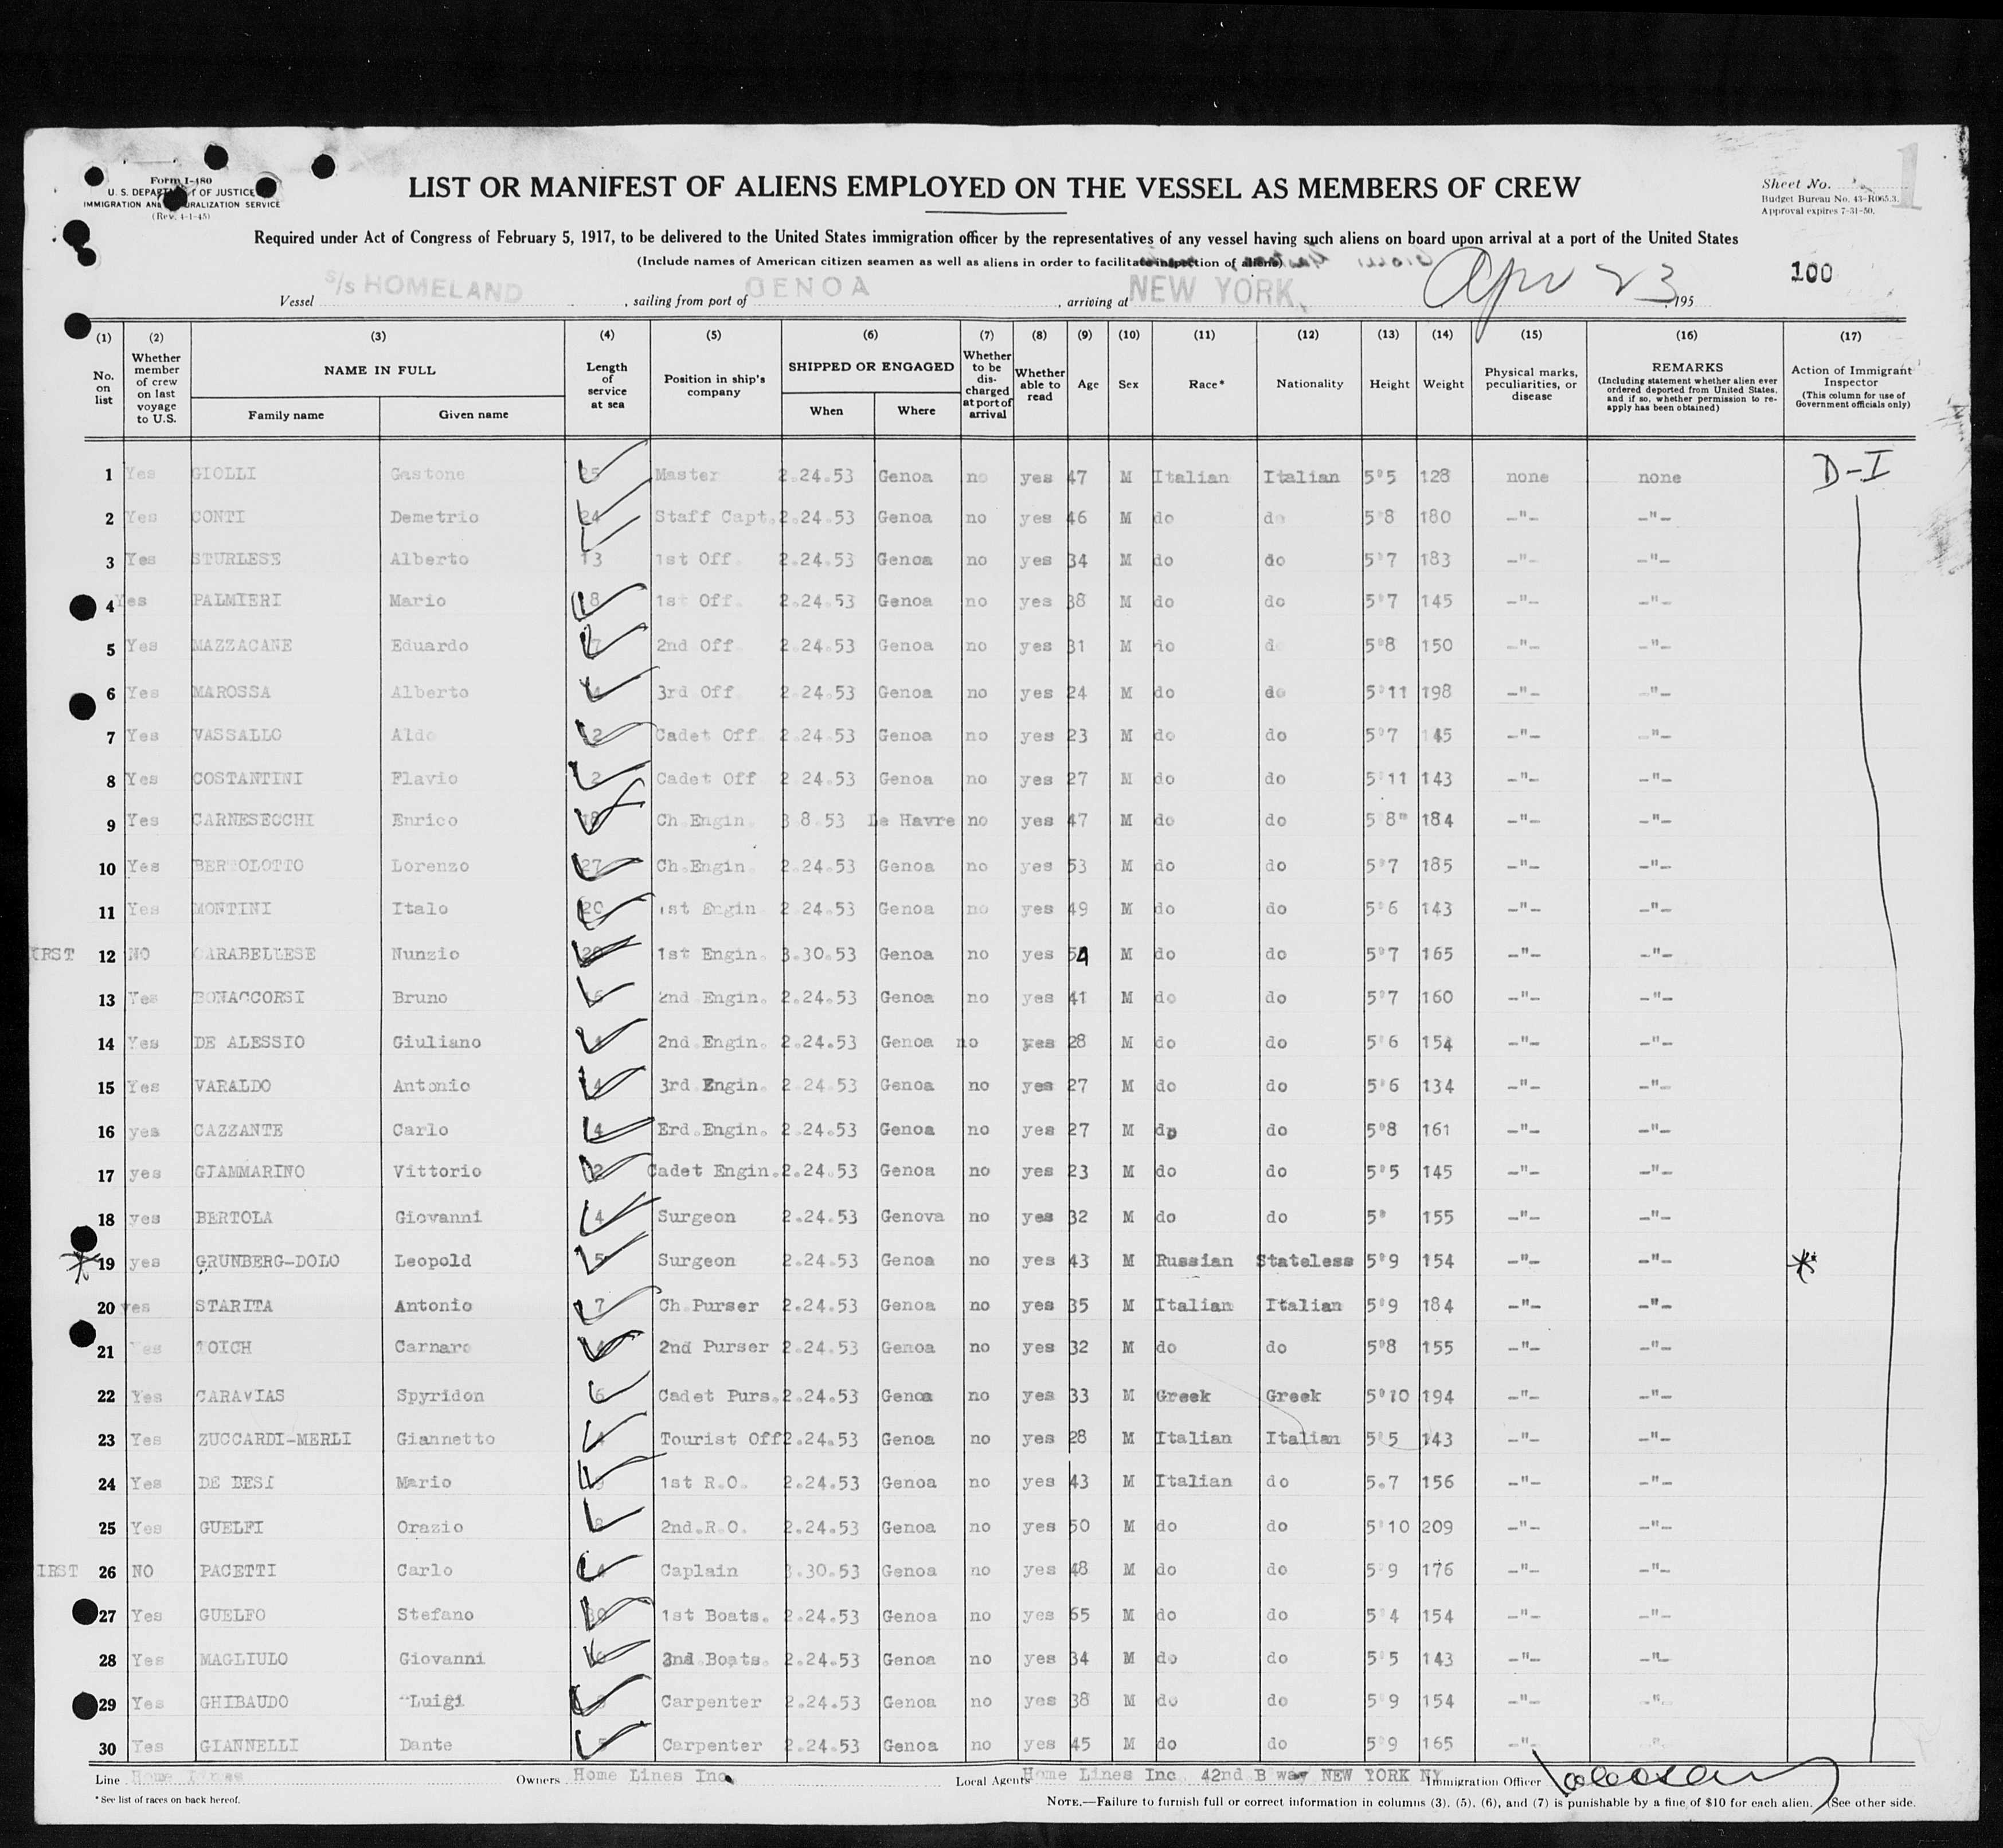 Form I-480
U. S. DEPARTMENT OF JUSTICE
IMMIGRATION AND NATURALIZATION SERVICE
(Rev. 4-1-45)
LIST OR MANIFEST OF ALIENS EMPLOYED ON THE VESSEL AS MEMBERS OF CREW
Sheet No. 1
Budget Bureau No. 43-R065.3.
Approval expires 7-31-50.
Required under Act of Congress of February 5, 1917, to be delivered to the United States immigration officer by the representatives of any vessel having such aliens on board upon arrival at a port of the United States
(Include names of American citizen seamen as well as aliens in order to facilitate inspection of aliens)
100
Vessel S/S HOMELAND, sailing from port of GENOA, arriving at NEW YORK, Apr 23, 195
(1) (2) (3) (4) (5) (6) (7) (8) (9) (10) (11) (12) (13) (14) (15) (16) (17)
No. on list
Whether member of crew on last voyage to U.S.
NAME IN FULL
Family name Given name
Length of service at sea
Position in ship's company
SHIPPED OR ENGAGED
When Where
Whether to be discharged at port of arrival
Whether able to read
Age Sex Race* Nationality Height Weight
Physical marks, peculiarities, or disease
REMARKS
(Including statement whether alien ever ordered deported from United States, and if so, whether permission to re-apply has been obtained)
Action of Immigrant Inspector
(This column for use of Government officials only)
1 Yes GIOLLI Gastone 25 Master 2.24.53 Genoa no yes 47 M Italian Italian 5'5 128 none none D-I
2 Yes CONTI Demetrio 24 Staff Capt. 2.24.53 Genoa no yes 46 M do do 5'8 180 -"- -"-
3 Yes STURLESE Alberto 13 1st Off. 2.24.53 Genoa no yes 34 M do do 5'7 183 -"- -"-
4 Yes PALMIERI Mario 8 1st Off. 2.24.53 Genoa no yes 38 M do do 5'7 145 -"- -"-
5 Yes MAZZACANE Eduardo 7 2nd Off. 2.24.53 Genoa no yes 31 M do do 5'8 150 -"- -"-
6 Yes MAROSSA Alberto 4 3rd Off. 2.24.53 Genoa no yes 24 M do do 5'11 198 -"- -"-
7 Yes VASSALLO Aldo 2 Cadet Off. 2.24.53 Genoa no yes 23 M do do 5'7 145 -"- -"-
8 Yes COSTANTINI Flavio 2 Cadet Off 2 24.53 Genoa no yes 27 M do do 5'11 143 -"- -"-
9 Yes CARNESECCHI Enrico 18 Ch Engin. 3 8.53 Le Havre no yes 47 M do do 5'8" 184 -"- -"-
10 Yes BERTOLOTTO Lorenzo 27 Ch.Engin. 2.24.53 Genoa no yes 53 M do do 5'7 185 -"- -"-
11 Yes MONTINI Italo 20 1st Engin 2 24.53 Genoa no yes 49 M do do 5'6 143 -"- -"-
IRST 12 NO CARABELLESE Nunzio 1st Engin. 3.30.53 Genoa no yes 54 M do do 5'7 165 -"- -"-
13 Yes BONACCORSI Bruno 2nd Engin. 2.24.53 Genoa no yes 41 M do do 5'7 160 -"- -"-
14 Yes DE ALESSIO Giuliano 4 2nd.Engin. 2.24.53 Genoa no yes 28 M do do 5'6 154 -"- -"-
15 Yes VARALDO Antonio 4 3rd Engin. 2 24 53 Genoa no yes 27 M do do 5'6 134 -"- -"-
16 yes CAZZANTE Carlo 4 Erd.Engin. 2 24.53 Genoa no yes 27 M do do 5'8 161 -"- -"-
17 yes GIAMMARINO Vittorio 2 Cadet Engin. 2.24.53 Genoa no yes 23 M do do 5'5 145 -"- -"-
18 yes BERTOLA Giovanni 4 Surgeon 2.24.53 Genova no yes 32 M do do 5' 155 -"- -"-
* 19 yes GRUNBERG-DOLO Leopold 5 Surgeon 2.24.53 Genoa no yes 43 M Russian Stateless 5'9 154 -"- -"- *
20 yes STARITA Antonio 7 Ch.Purser 2.24.53 Genoa no yes 35 M Italian Italian 5'9 184 -"- -"-
21 Yes TOICH Carnaro 2nd Purser 2.24.53 Genoa no yes 32 M do do 5'8 155 -"- -"-
22 Yes CARAVIAS Spyridon 6 Cadet Purs. 2.24.53 Genoa no yes 33 M Greek Greek 5'10 194 -"- -"-
23 Yes ZUCCARDI-MERLI Giannetto 4 Tourist Off 2.24.53 Genoa no yes 28 M Italian Italian 5'5 143 -"- -"-
24 Yes DE BESI Mario 1st R.O. 2.24.53 Genoa no yes 43 M Italian do 5.7 156 -"- -"-
25 Yes GUELFI Orazio 2nd.R.O. 2.24.53 Genoa no yes 50 M do do 5'10 209 -"- -"-
IRST 26 NO PACETTI Carlo Caplain 3.30.53 Genoa no yes 48 M do do 5'9 176 -"- -"-
27 Yes GUELFO Stefano 30 1st Boats. 2.24.53 Genoa no yes 65 M do do 5'4 154 -"- -"-
28 Yes MAGLIULO Giovanni 2nd Boats. 2.24.53 Genoa no yes 34 M do do 5'5 143 -"- -"-
29 Yes GHIBAUDO Luigi Carpenter 2.24.53 Genoa no yes 38 M do do 5'9 154 -"- -"-
30 Yes GIANNELLI Dante 5 Carpenter 2.24.53 Genoa no yes 45 M do do 5'9 165 -"- -"-
Line Home Lines Owners Home Lines Inc. Local Agents Home Lines Inc 42nd B way NEW YORK NY Immigration Officer
*See list of races on back hereof.
NOTE.—Failure to furnish full or correct information in columns (3), (5), (6), and (7) is punishable by a fine of $10 for each alien. (See other side.